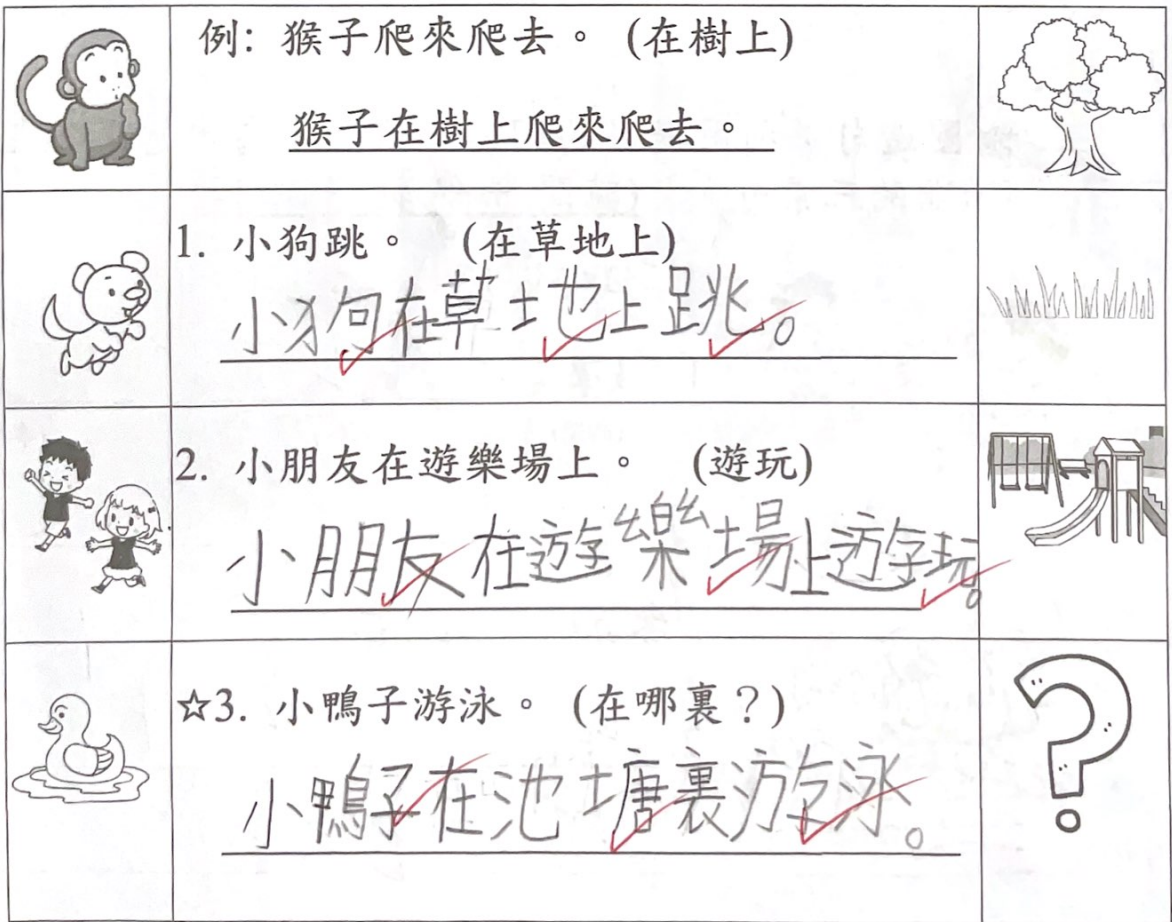 例: 猴子爬來爬去。 (在樹上)
猴子在樹上爬來爬去。
1. 小狗跳。 (在草地上)
小狗在草地上跳。
2. 小朋友在遊樂場上。 (遊玩)
小朋友在遊樂場上遊玩。
☆3. 小鴨子游泳。 (在哪裏？)
小鴨子在池塘裏游泳。
?